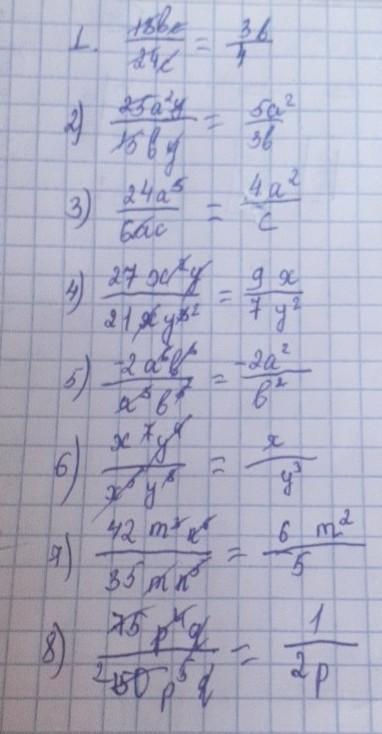 1. 18bc/24c = 3b/4
2) 25a²y/15by = 5a²/3b
3) 24a³/6ac = 4a²/c
4) 27x²y/21xy³ = 9x/7y²
5) -2a⁵b⁵/a³b⁷ = -2a²/b²
6) x⁷y/x⁶y = x/y³
7) 42m³n⁵/35mn⁵ = 6m²/5
8) 75p⁴q/150p⁵q = 1/2p